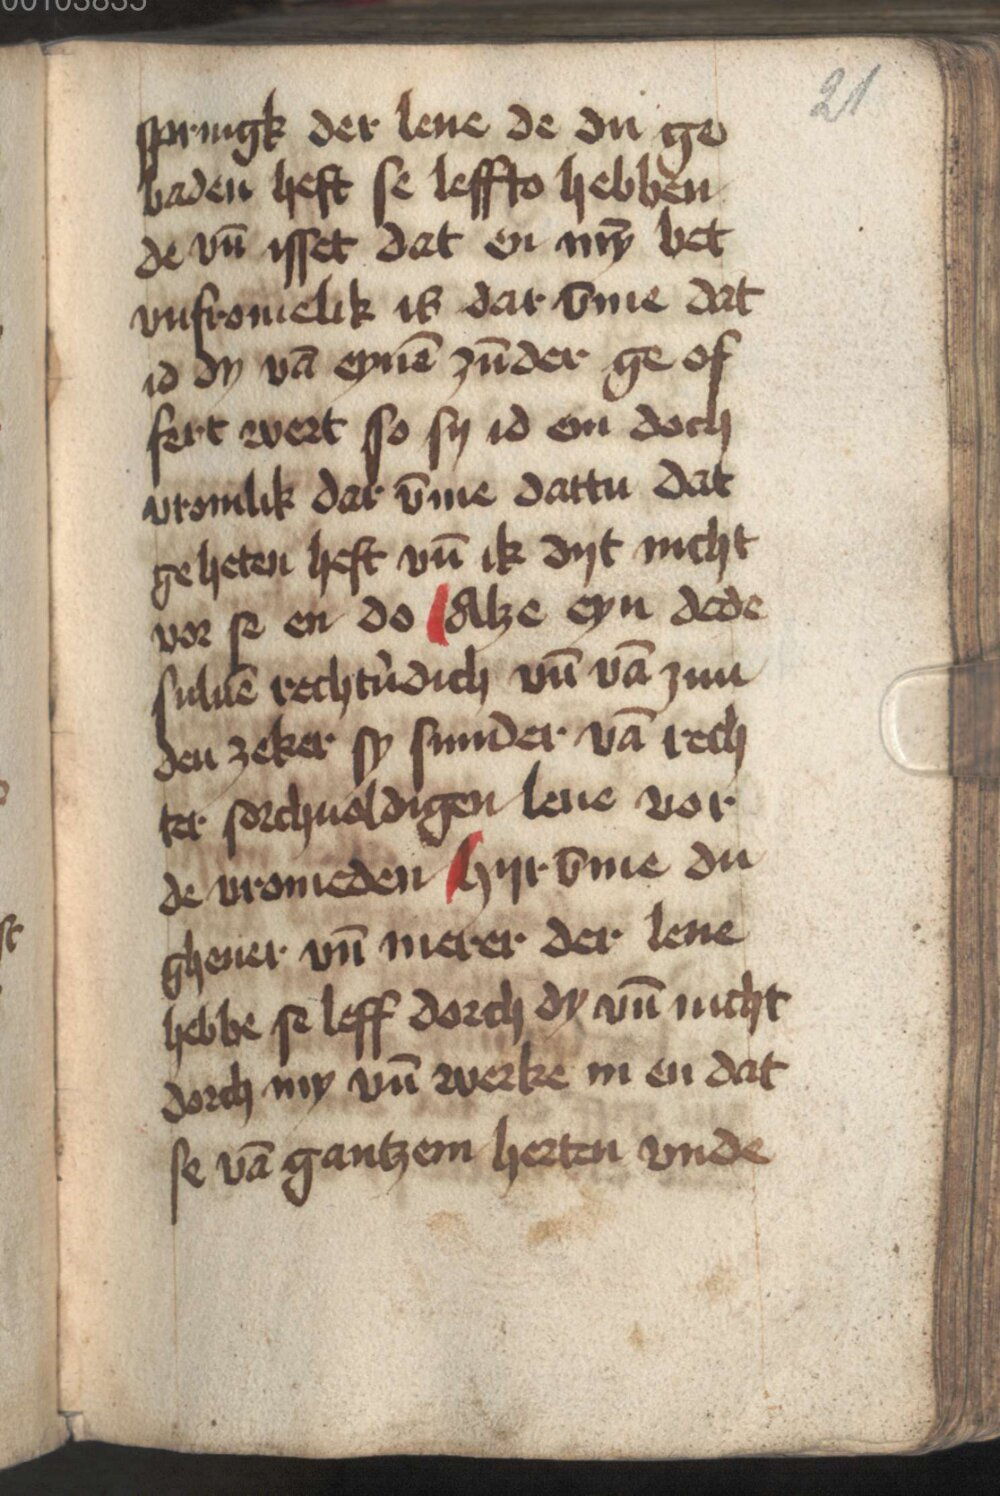 00103835
21
springk der leue de du ge
baden heft se leffto hebben
de vn̄ isset dat en mȳ bet
vnfromelik is dar v̄me dat
id dy vā eynē zūder ge of
fert wert so sy id em doch
vromlik dar v̄me dattu dat
geheten heft vn̄ ik dyt nicht
vor se en do Alze eyn dede
suluē rechtùdich vn̄ vā zun
den zeker sy sunder vā rech
ter sorchuoldigen leue vor
de vromeden hyr v̄me du
gheuer vn̄ merer der leue
hebbe se leff dorch dy vn̄ nicht
dorch my vn̄ werke in en dat
se vā gantzem herten vnde